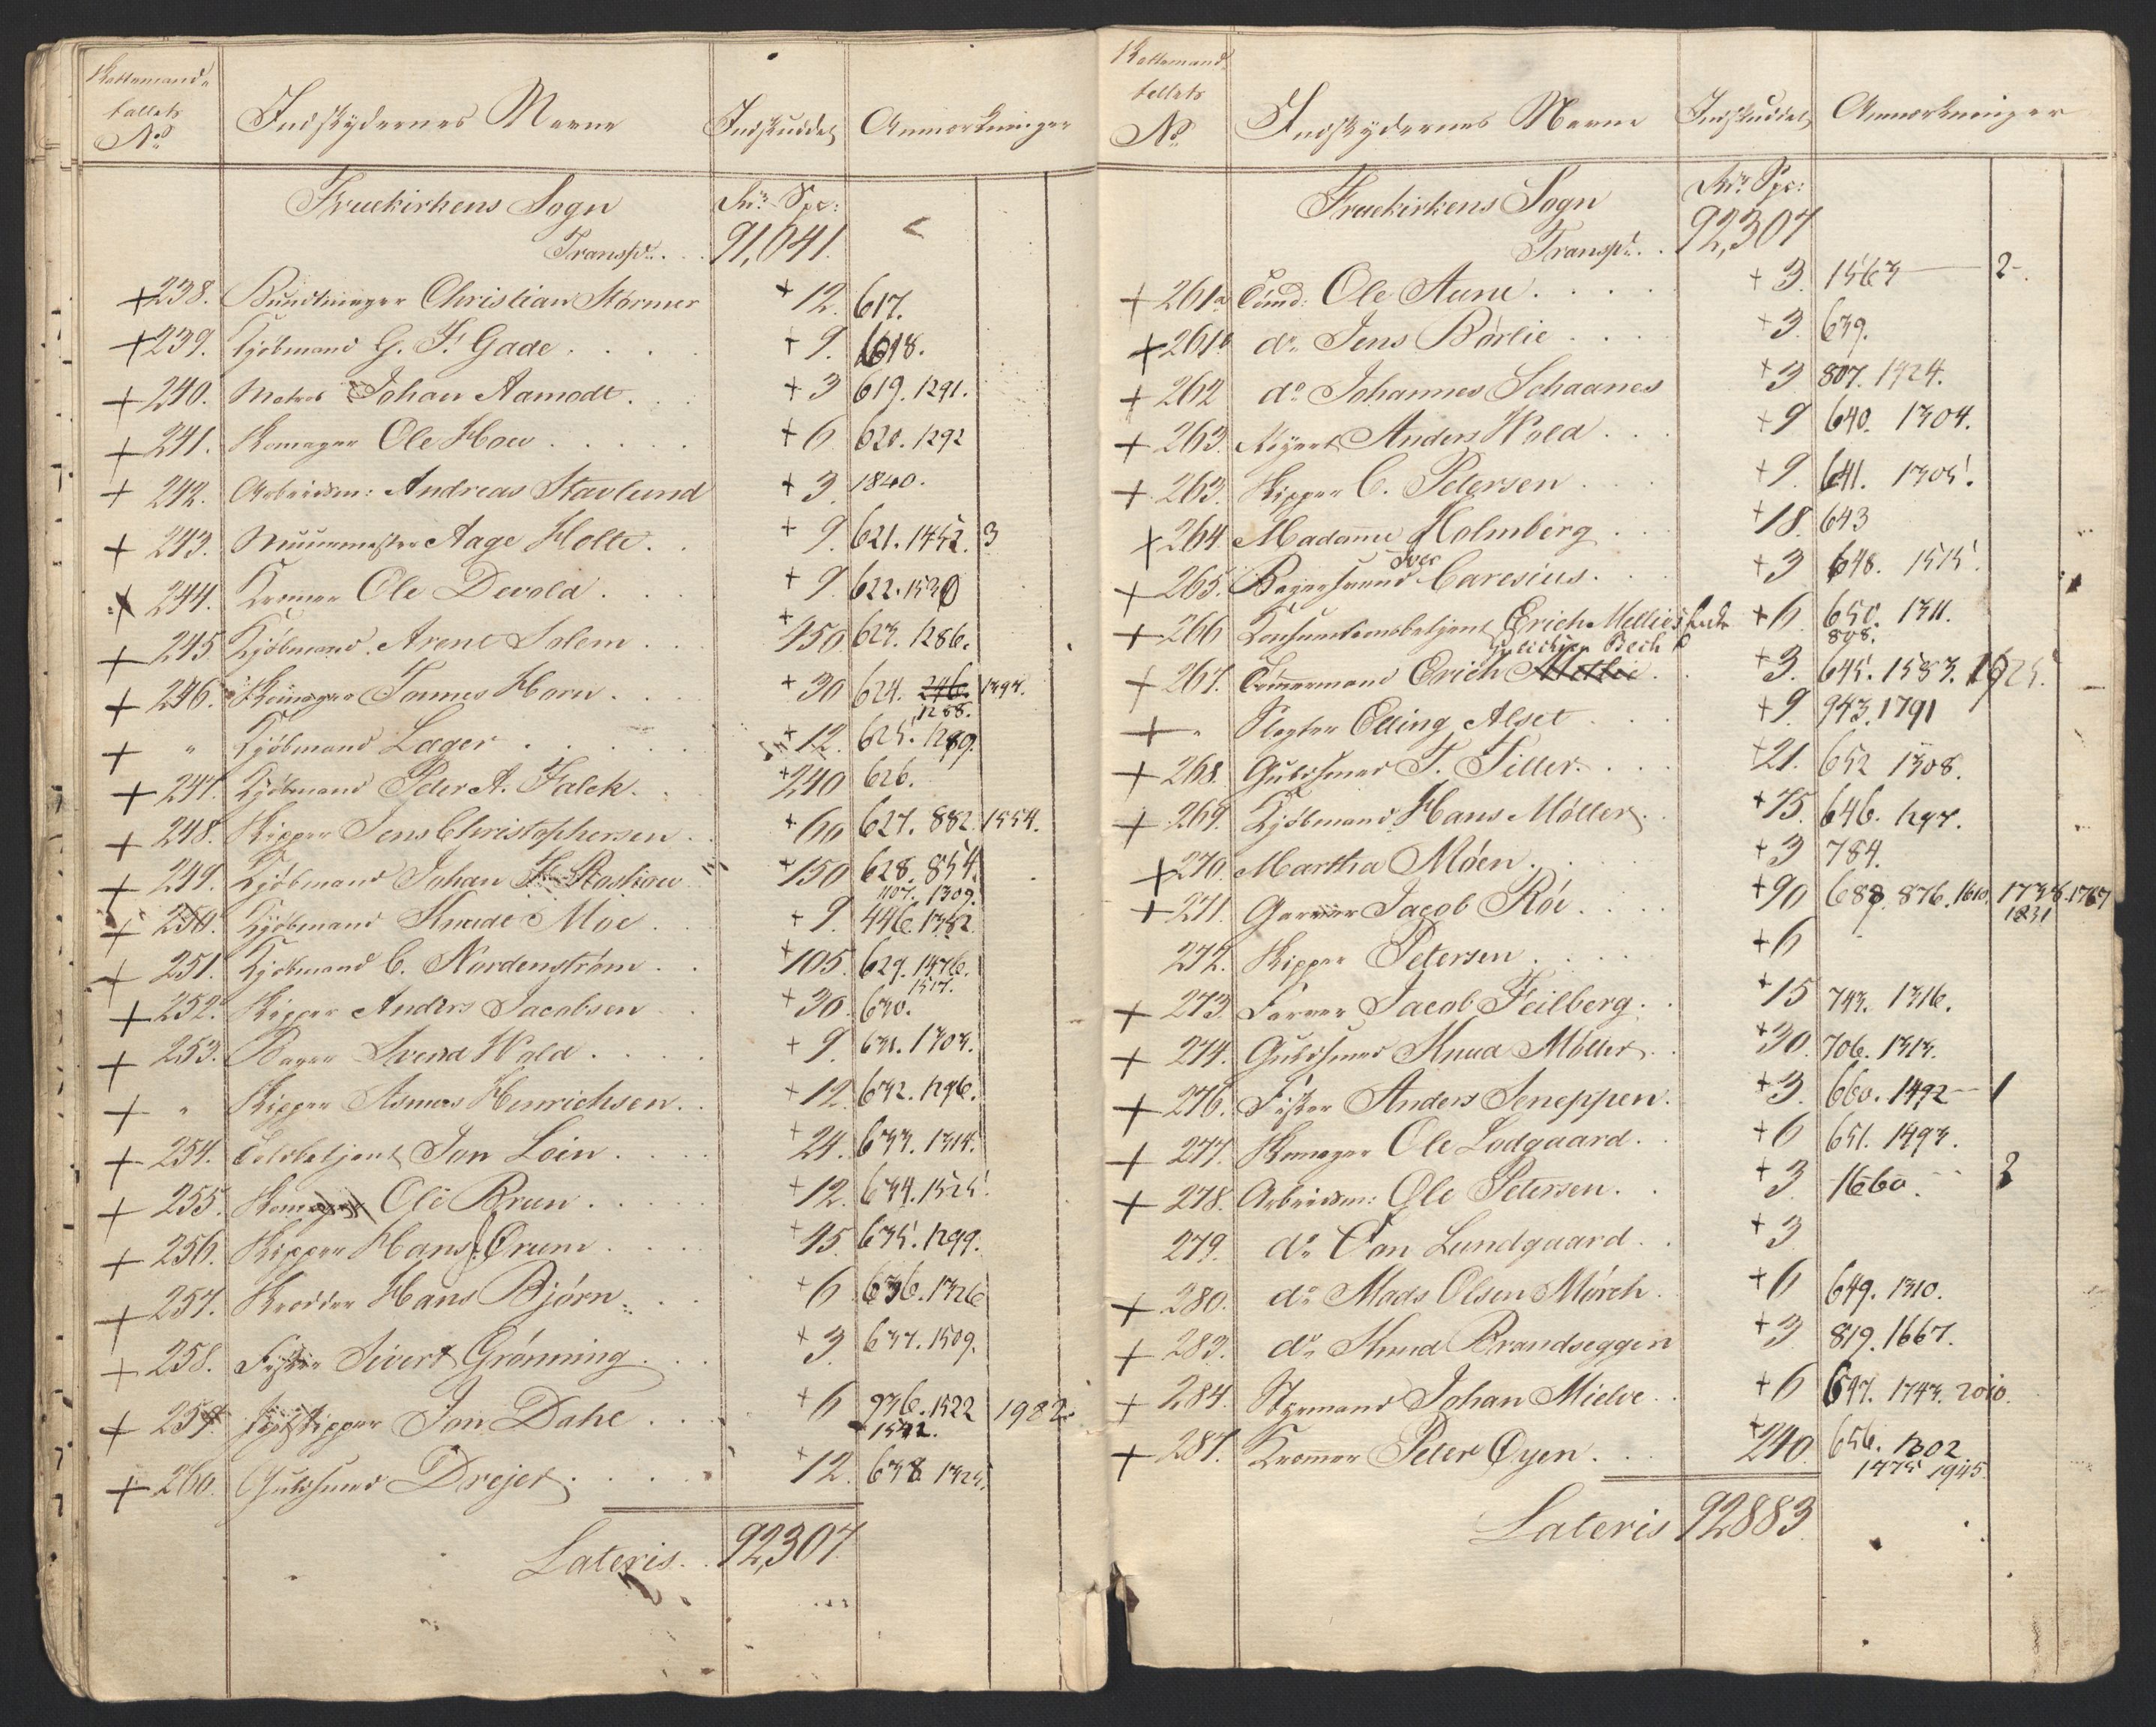 Skattemand-
tallets
No Indskydernes Navne Indskuddet Anmærkninger
Fruekirkens Sogn Rdr Spe:
Transpt. . 91,041.
+238. Bundtmager Christian Stórmer +12. 617.
+239. Kjöbmand G. F. Gade . . . . +9. 618.
+240. Matros Johan Aamodt . . +3 619. 1291.
+241. Skomager Ole Hou . . . . +6 620. 1292
+242. Arbeidsm: Andreas Stavlund +3 1840.
+243. Muurmester Aage Holte . . +9. 621. 1452. 3
+244. Kræmer Ole Devold . . . +9. 622. 1530
+245 Kjöbmand Arent Solem . . +450 623. 1286.
+246. Skomager Tønnes Horn . . +30 624. 246. 1394.
1288.
+ " Kjöbmand Lager . . . . . +12. 625. 1289.
+247. Kjöbmand Peter A. Falck . . +240 626.
+248. Skipper Jens Christophersen . +60 627. 882. 1554.
+249. Kjöbmand Johan +150 628. 854.
1107. 1309.
+250. Kjöbmand Knude Moe . . +9. 446. 1382.
+251. Kjöbmand C. Nordenström . . +105. 629. 1476.
1517.
+252. Skipper Anders Jacobsen . . +30. 630.
+253. Bager Svend Wold . . . . +9. 631. 1303.
+ " Skipper Asmus Henrichsen . . +12. 632. 1296.
+254. Toldbetjent Jon Loin . . . . +24. 633. 1314.
+255. Ole Bruun . . . . +12. 634. 1525.
+256. Skipper Hans Ørum . . . . +45. 635. 1299.
+257. Skrædder Hans Björn . . +6 636. 1326
+258. Fisker Sivert Grønning . . . +3. 637. 1509.
+259. Jon Dahl . . . . +6 936. 1522 1982.
1542.
+260. Guldsmed Drejer . . . . . +12. 638 1325.
Lateris . . 92,307.
Skattemand-
tallets
No Indskydernes Navne Indskuddet Anmærkninger
Fruekirkens Sogn Rdr Spe:
Transpt. . 92,307
+261a Ole Aune . . . . . +3. 1563 2.
+261b do Jens Börlie . . . +3. 639.
+262 do Johannes Schaanes +3 807. 1424.
+263. Anders Wold . . . +9 640. 1304.
+263. Skipper C. Petersen . . . . +9. 641. 1305.
+264. Madame Holmberg . . +18. 643
Iver
+265. Bagersvend Caresius . . . +3 648. 1515.
+266 Konsumtionsbetjent Erich Mellies +6 650. 1311.
Bech 808.
+267. Tømmermand Erich Mellie . +3. 645. 1583. 1625.
+ " Slagter Elling Alset . . . +9 943. 1791
+268. Guldsmed T. Tiller . . . . +21. 652 1308.
+269. Kjöbmand Hans Möller . . +75. 646. 1297.
+270. Martha Móen . . . +3 784.
+271. Garver Jacob Röe . . . . +90 688. 876. 1610. 1738. 1767
1831
272. Skipper Petersen . . . . +6
+273. Farver Jacob Feilberg . . +15 743. 1316.
+274. Guldsmed Knud Möller . . +30. 706. 1313.
+276. Fisker Anders Sneppen . +3. 660. 1492 1
+277. Skomager Ole Lodgaard . . +6 651. 1493.
+278. Arbeidsm: Ole Petersen . . +3 1660. 2
279. do Jon Lundgaard . . +3
+280. do Mads Olsen Mörch . +6 649. 1310.
+283. do Knud Brandseggen +3 819. 1667.
+284. Styrmand Johan Mielve . . +6 647. 1743. 2010.
+287. Kræmer Peter Øyen . . . +240. 656. 1302
1775 1945.
Lateris 92883.